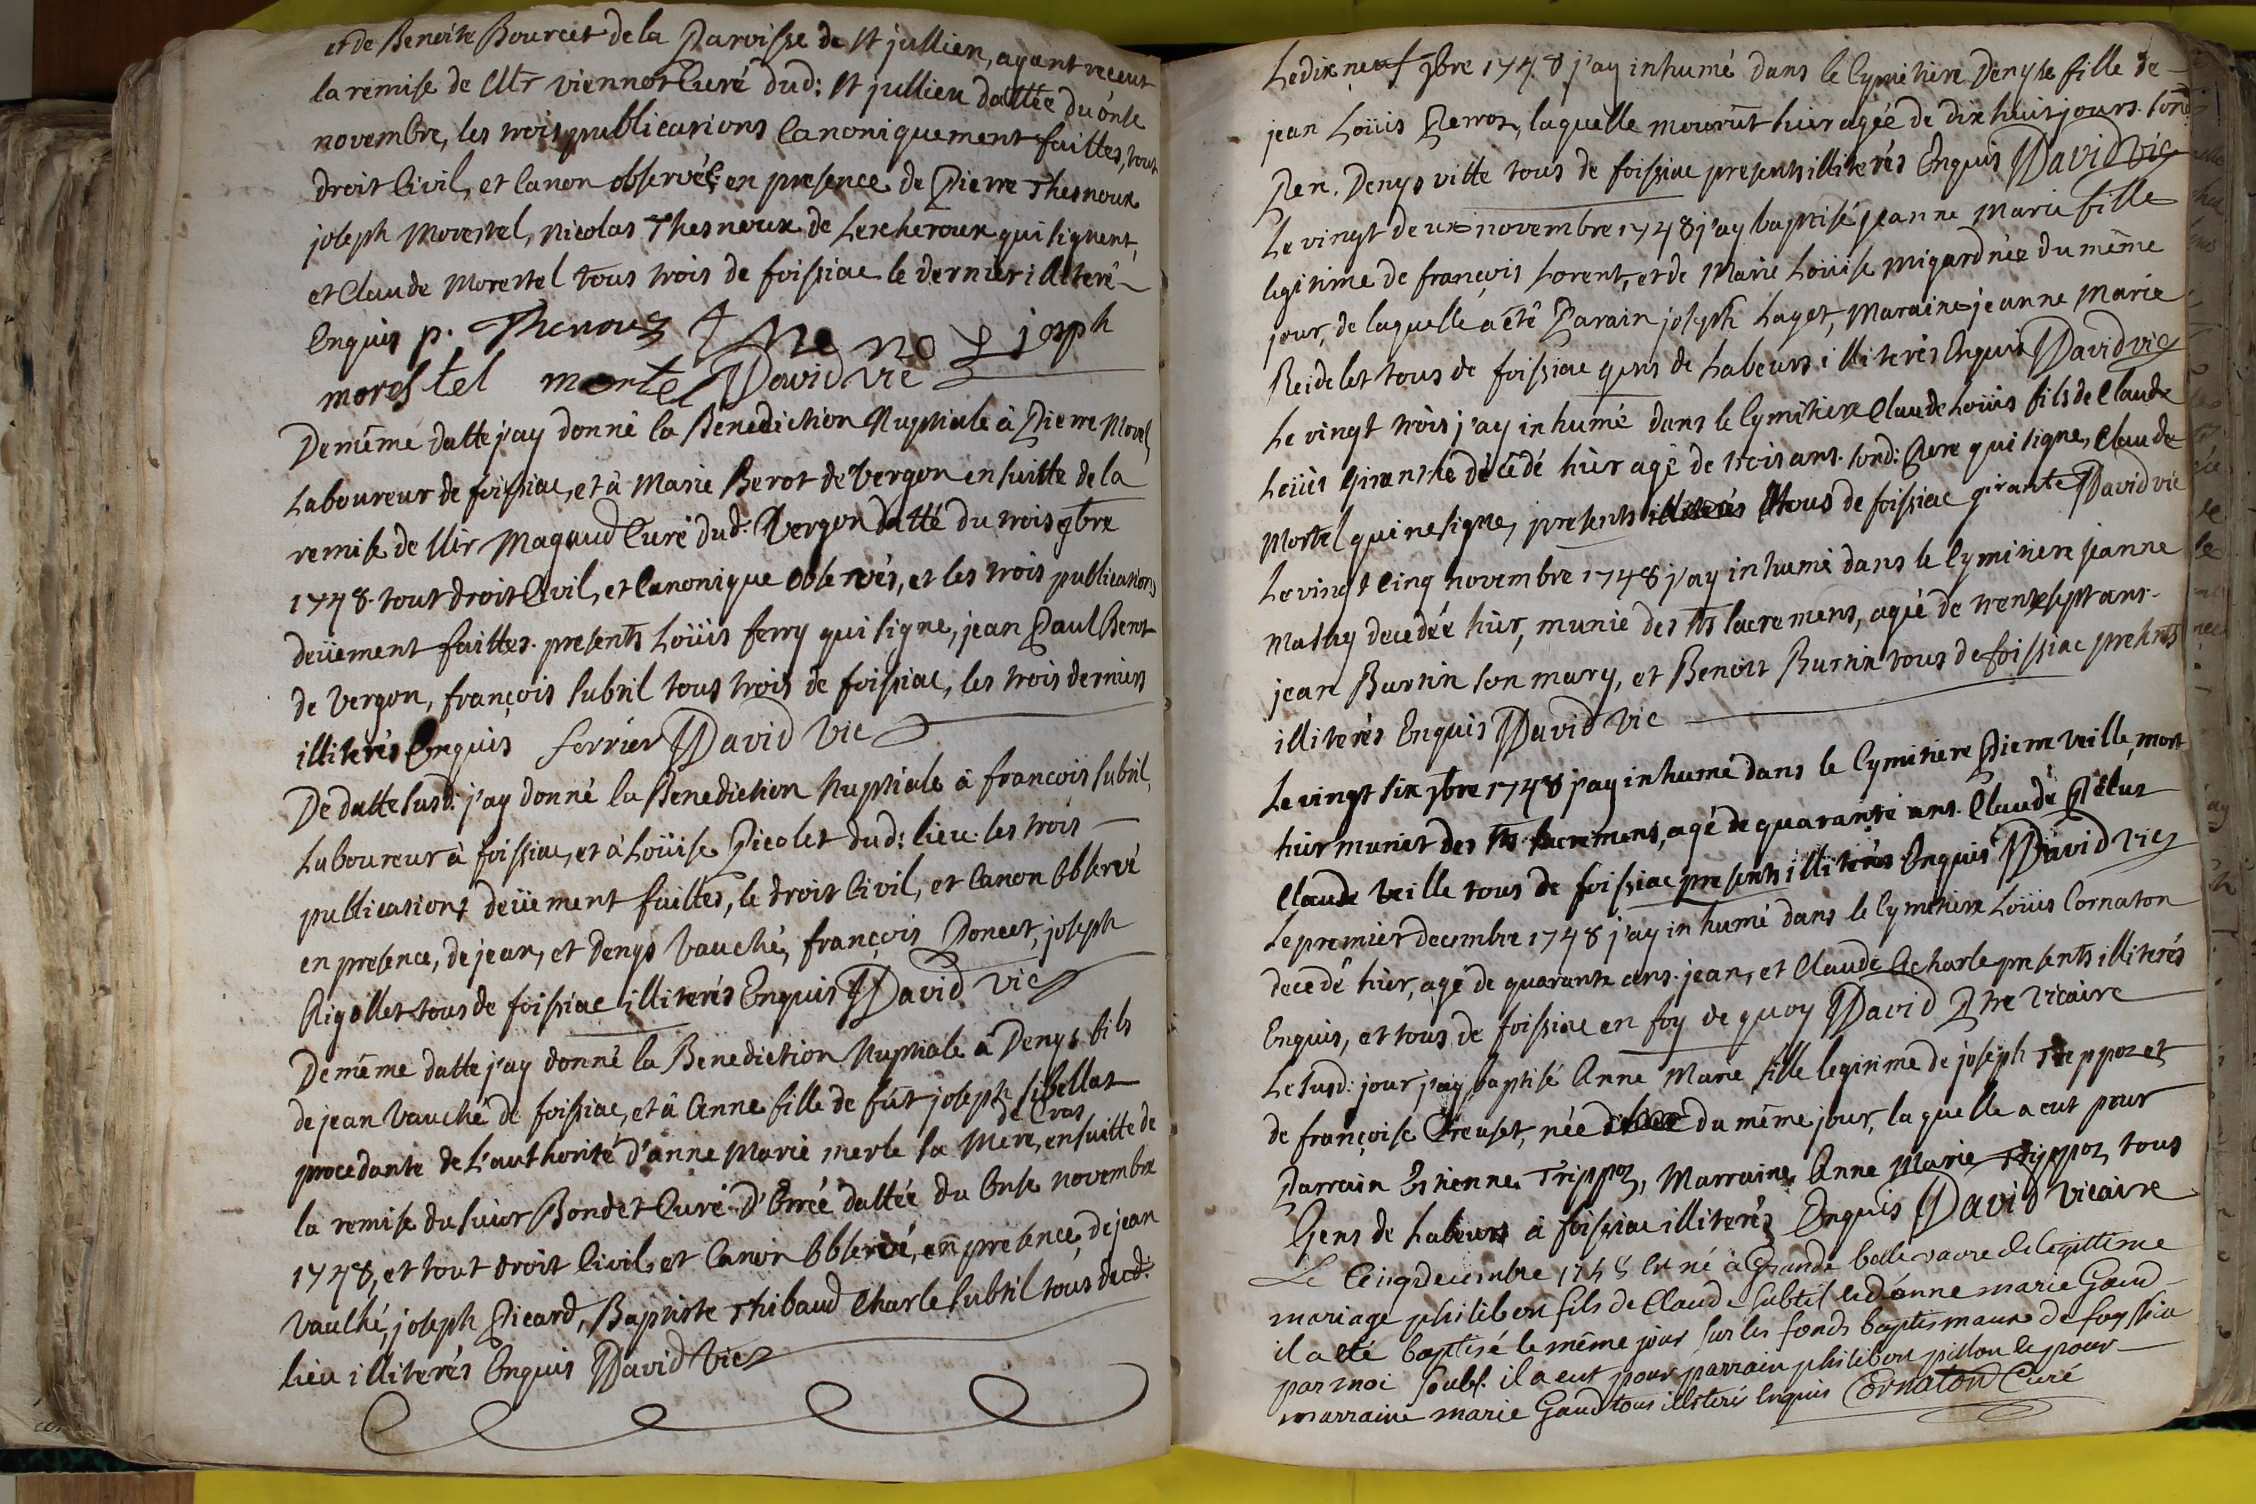 et de Benoite Bourcet de la Paroisse de St jullien, ayant receut
la remise de Mr viennot Curé dud: St jullien dattée du ônse
novembre, les trois publications Canoniquement faittes, tout
droit Civil, et Canon observés en presence de Pierre Thesnoux
joseph Morestel, nicolas Thesnoux de Lescheroux qui signent,
et Claude Morestel tous trois de foissiac le dernier illiteré
Enquis p. Thenoux joseph
morestel David vic
De même datte j'ay donné la Benediction Nuptiale à Pierre Morel,
Laboureur de foissiac, et à Marie Berot de Vergon ensuitte de la
remise de Mr Magaud Curé dud: Vergon datté du trois 9bre
1748. tout droit Civil, et Canonique observés, et les trois publications
deüement faittes. presents Loüis ferry qui signe, jean Paul Berot
de Vergon, françois subtil tous trois de foissiac, les trois derniers
illiterés Enquis ferrier David Vic
De datte susd: j'ay donné la Benediction Nuptiale à francois subtil,
Laboureur à foissiac, et à Loüise Picolet dud: lieu. les trois
publications deüement faittes, le droit Civil, et Canon observé
en presence, de jean, et Denys Vauché, françois Poncet, joseph
Rigollet tous de foissiac illiterés Enquis David Vic
De même datte j'ay donné la Benediction Nuptiale à Denys fils
de jean Vauché de foissiac, et à Anne fille de fût joseph sibellas
de Cras
procedante de L'authorité d'anne Marie merle sa Mere, ensuitte de
la remise du sieur Bondet Curé d'Etrée dattée du Onse novembre
1748, et tout droit Civil, et Canon observé, en presence, de jean
Vauché, joseph Picard, Baptiste Thibaud Charle subtil tous dud:
lieu illiterés Enquis David Vic
Le dix neuf 9bre 1748 j'ay inhumé dans le Cymitiere Denyse fille de
jean Loüis Perroz, laquelle mourût hier agée de dix huit jours. sond:
Per. Denys vitte tous de foissiac presents illiterés Enquis David Vic
Le vingt deux novembre 1748 j'ay baptisé jeanne Marie fille
legitime de françois Lorent, et de Marie Loüise migard née du même
jour, de laquelle a êtê Parain joseph Layet, Maraine jeanne Marie
Reidelet tous de foissiac gens de Labeurs illiterés Enquis David vic
Le vingt trois j'ay inhumé dans le Cymitiere Claude Loüis fils de Claude
Loüis Giranthe dêcedé hier agé de trois ans. sond: Pere qui signe, Claude
Mortel qui ne signe, presents tous de foissiac girante David vic
Le vingt cinq novembre 1748 j'ay inhumé dans le Cymitiere jeanne
Mathy decedée hier, munie des Sts sacremens, agée de trente sept ans.
jean Burtin son mary, et Benoit Burtin tous de foissiac presents
illiterés Enquis David Vic
Le vingt six 9bre 1748 j'ay inhumé dans le Cymitiere Pierre Veille, mort
hier munit des Sts sacremens, agé de quarante ans. Claude
Claude Veille tous de foissiac presents illiterés Enquis David Vic
Le premier decembre 1748 j'ay inhumé dans le Cymitiere Loüis Cornaton
decedê hier, agé de quarante ans. jean, et Claude Acharle presents illiterés
Enquis, et tous de foissiac en foy de quoy David Ptre Vicaire
Le susd: jour j'ay baptisé Anne Marie fille legitime de joseph Treppoz et
de françoise Creuset, née du même jour, la quelle a eut pour
Parrain Estienne Trippoz, Marraine Anne Marie Trippoz, tous
Gens de Labeurs à foissiac illiterés Enquis David Vicaire
Le Cinq decembre 1748 est né à Grande belle vavre de legittime
mariage philibert fils de Claude subtil et d'anne marie Gaud
il a été baptisé le même jour sur les fonds baptismaux de foyssia
par moi soubs. il a eut pour parrain philibert pillon et pour
marraine marie Gaud tous illiteré Enquis Cornaton Curé